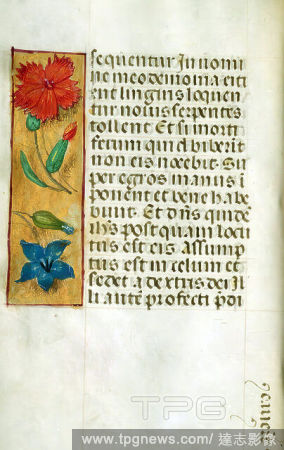 sequentur In nomi
ne meo demonia eiti
ent linguis loquen
tur nouis serpentes
tollent Et si morti
ferum quid biberit
non eis nocebit Su
per egros manus i
ponent et bene habe
bunt Et dns quide
ihs post quam locu
tus est eis assump
tus est in celum et
sedet a dextris dei Il
li autē profecti pdi
TPG
www.tpgnews.com / 達志影像